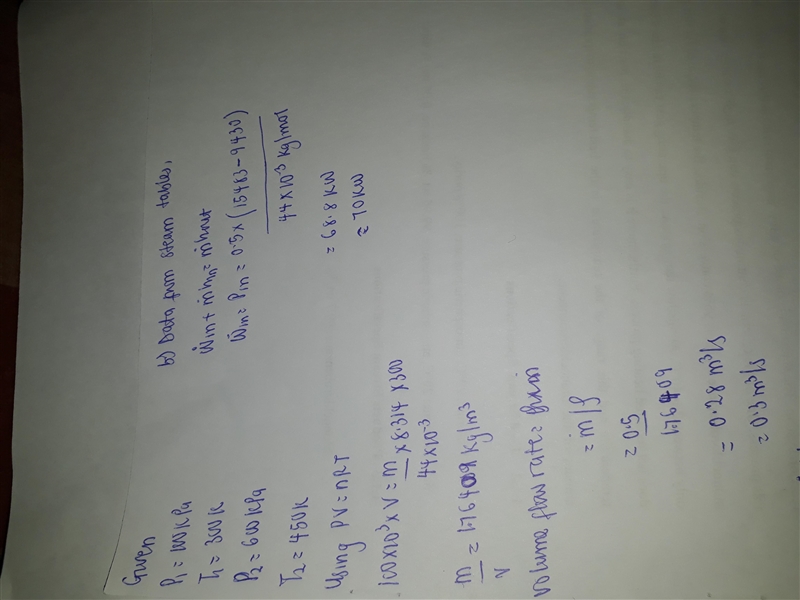 Given
P₁ = 100 KPa
T₁ = 300K
P₂ = 600 KPa
T₂ = 450K
Using PV = nRT
100×10³ × V = m/44×10⁻³ × 8.314 × 300
m/V = 1.76409 kg/m³
Volume flow rate =
= ṁ/ρ
= 0.5/1.76409
= 0.28 m³/s
≈ 0.3 m³/s
b) Data from steam tables,
Ẇin + ṁhin = ṁhout
Ẇin = Pin = 0.5 × (15483 - 9430)/44×10⁻³ kg/mol
= 68.8 KW
≈ 70 KW